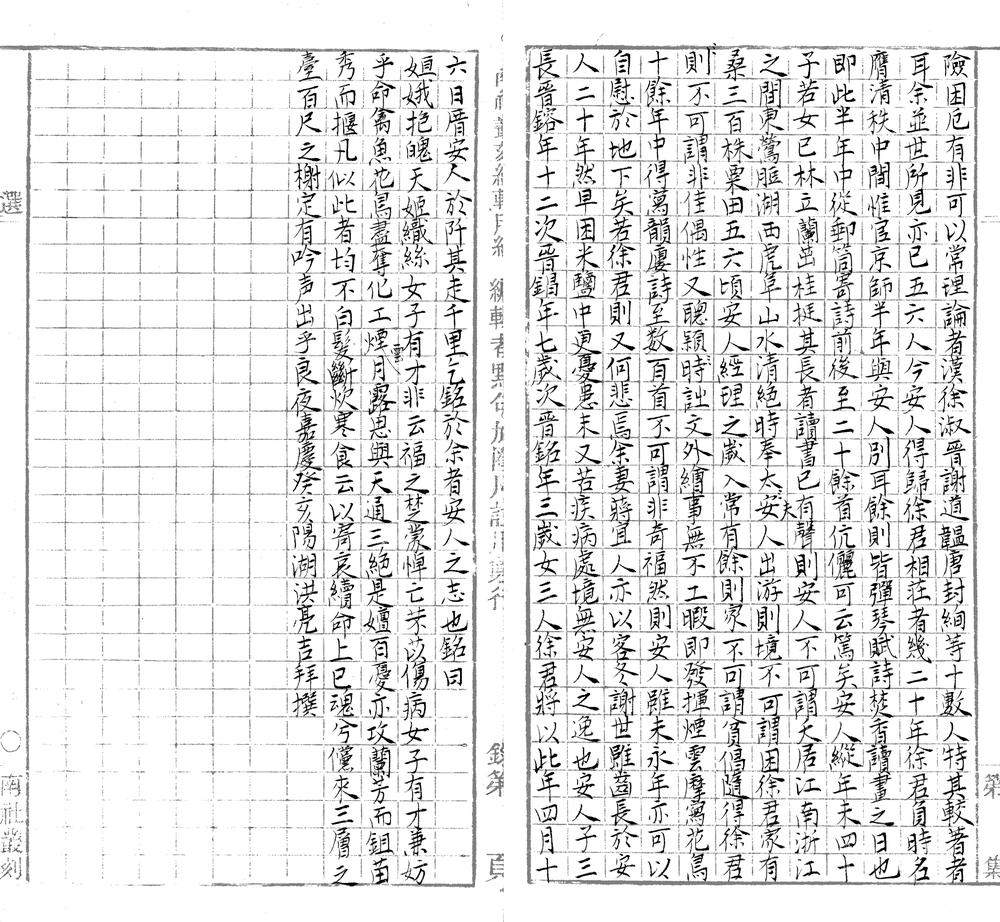 險困厄有非可以常理論者漢徐淑晉謝道韞唐封絢等十數人特其較著者
耳余並世所見亦已五六人今安人得歸徐君相莊者幾二十年徐君負時名
膺清秩中間惟官京師半年與安人別耳餘則皆彈琴賦詩焚香讀畫之日也
即此半年中從郵筒寄詩前後至二十餘首伉儷可云篤矣安人縱年未四十
子若女已林立蘭茁桂挺其長者讀書已有聲則安人不可謂夭居江南浙江
之間東鶯脰湖西虎阜山水清絕時奉太夫安人出游則境不可謂困徐君家有
桑三百株粟田五六頃安人經理之歲入常有餘則家不可謂貧倡隨得徐君
則不可謂非佳偶性又聰穎時詘文外繪事無不工暇即發揮煙雲摩寫花鳥
十餘年中得萬韻廔詩至数百首不可謂非奇福然則安人雖未永年亦可以
自慰於地下矣若徐君則又何悲焉余妻蔣宜人亦以客冬謝世雖齒長於安
人二十年然早困米鹽中更憂患末又苦疾病處境無安人之逸也安人子三
長晉鎔年十二次晉錫年七歲次晉銘年三歲女三人徐君將以此年四月十
六日厝安人於阡其走千里乞銘於余者安人之志也銘曰
姮娥抱魄天姬織絲女子有才非云福之楚蒙悼亡芣苡傷病女子有才兼妨
乎命禽魚花鳥盡奪化工煙雲月露思與天通三絕是嬗百憂亦攻蘭芳而鉏苗
秀而揠凡似此者均不白髮斷炊寒食云以寄哀續命上巳魂兮儻來三層之
臺百尺之榭定有吟声出乎良夜嘉慶癸亥陽湖洪亮吉拜撰
選
○南社叢刻
第
集